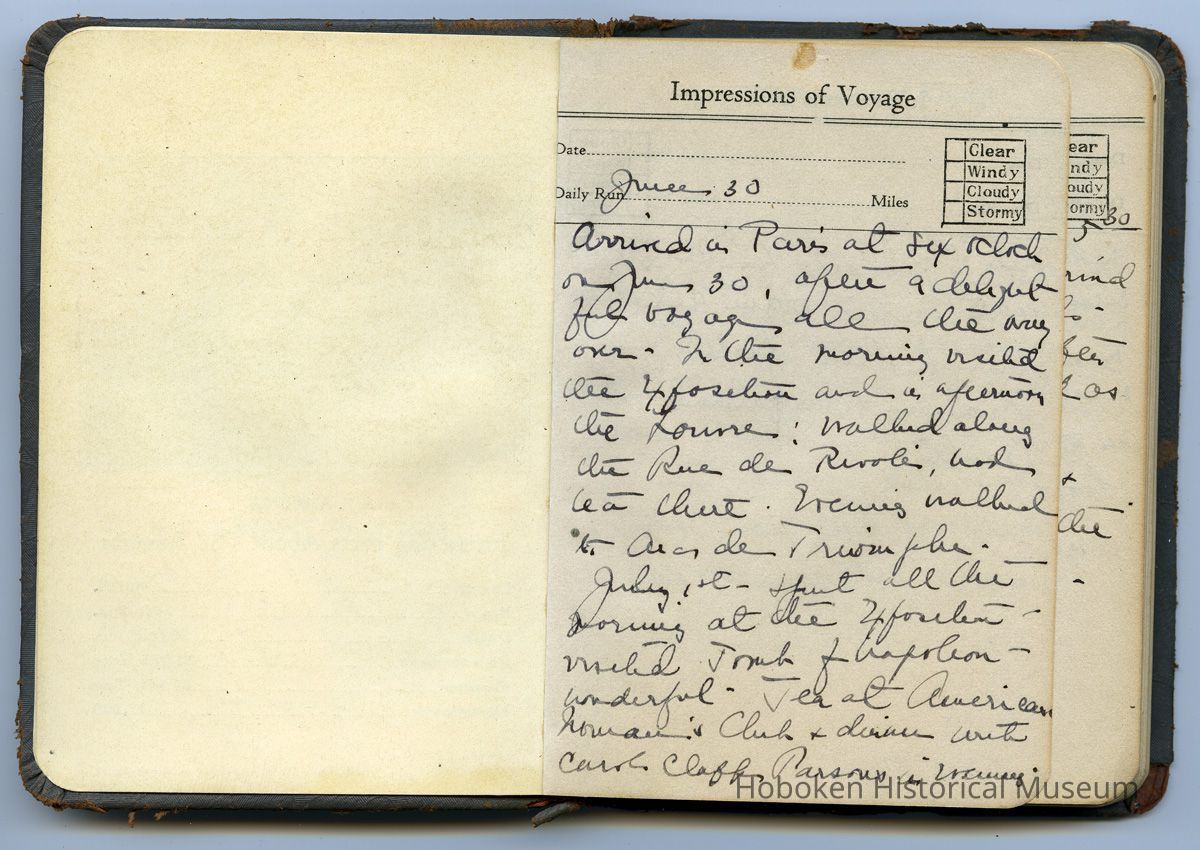 Impressions of Voyage
Date
Clear
Windy
Cloudy
Stormy
Daily Run June 30 Miles
Arrived in Paris at six oclock
on June 30, after a delight
ful voyage all the way
over - In the morning visited
the Exposition and in afternoon
the Louvre: walked along
the Rue de Rivoli, had
tea there. Evening walked
to Arc de Triomphe -
July 1st - spent all the
morning at the Exposition -
visited Tomb of Napoleon -
wonderful - Tea at American
Woman's Club + dinner with
Carol Parsons in evening.
ear
ndy
oudy
ormy
5 30
the
Hoboken Historical Museum